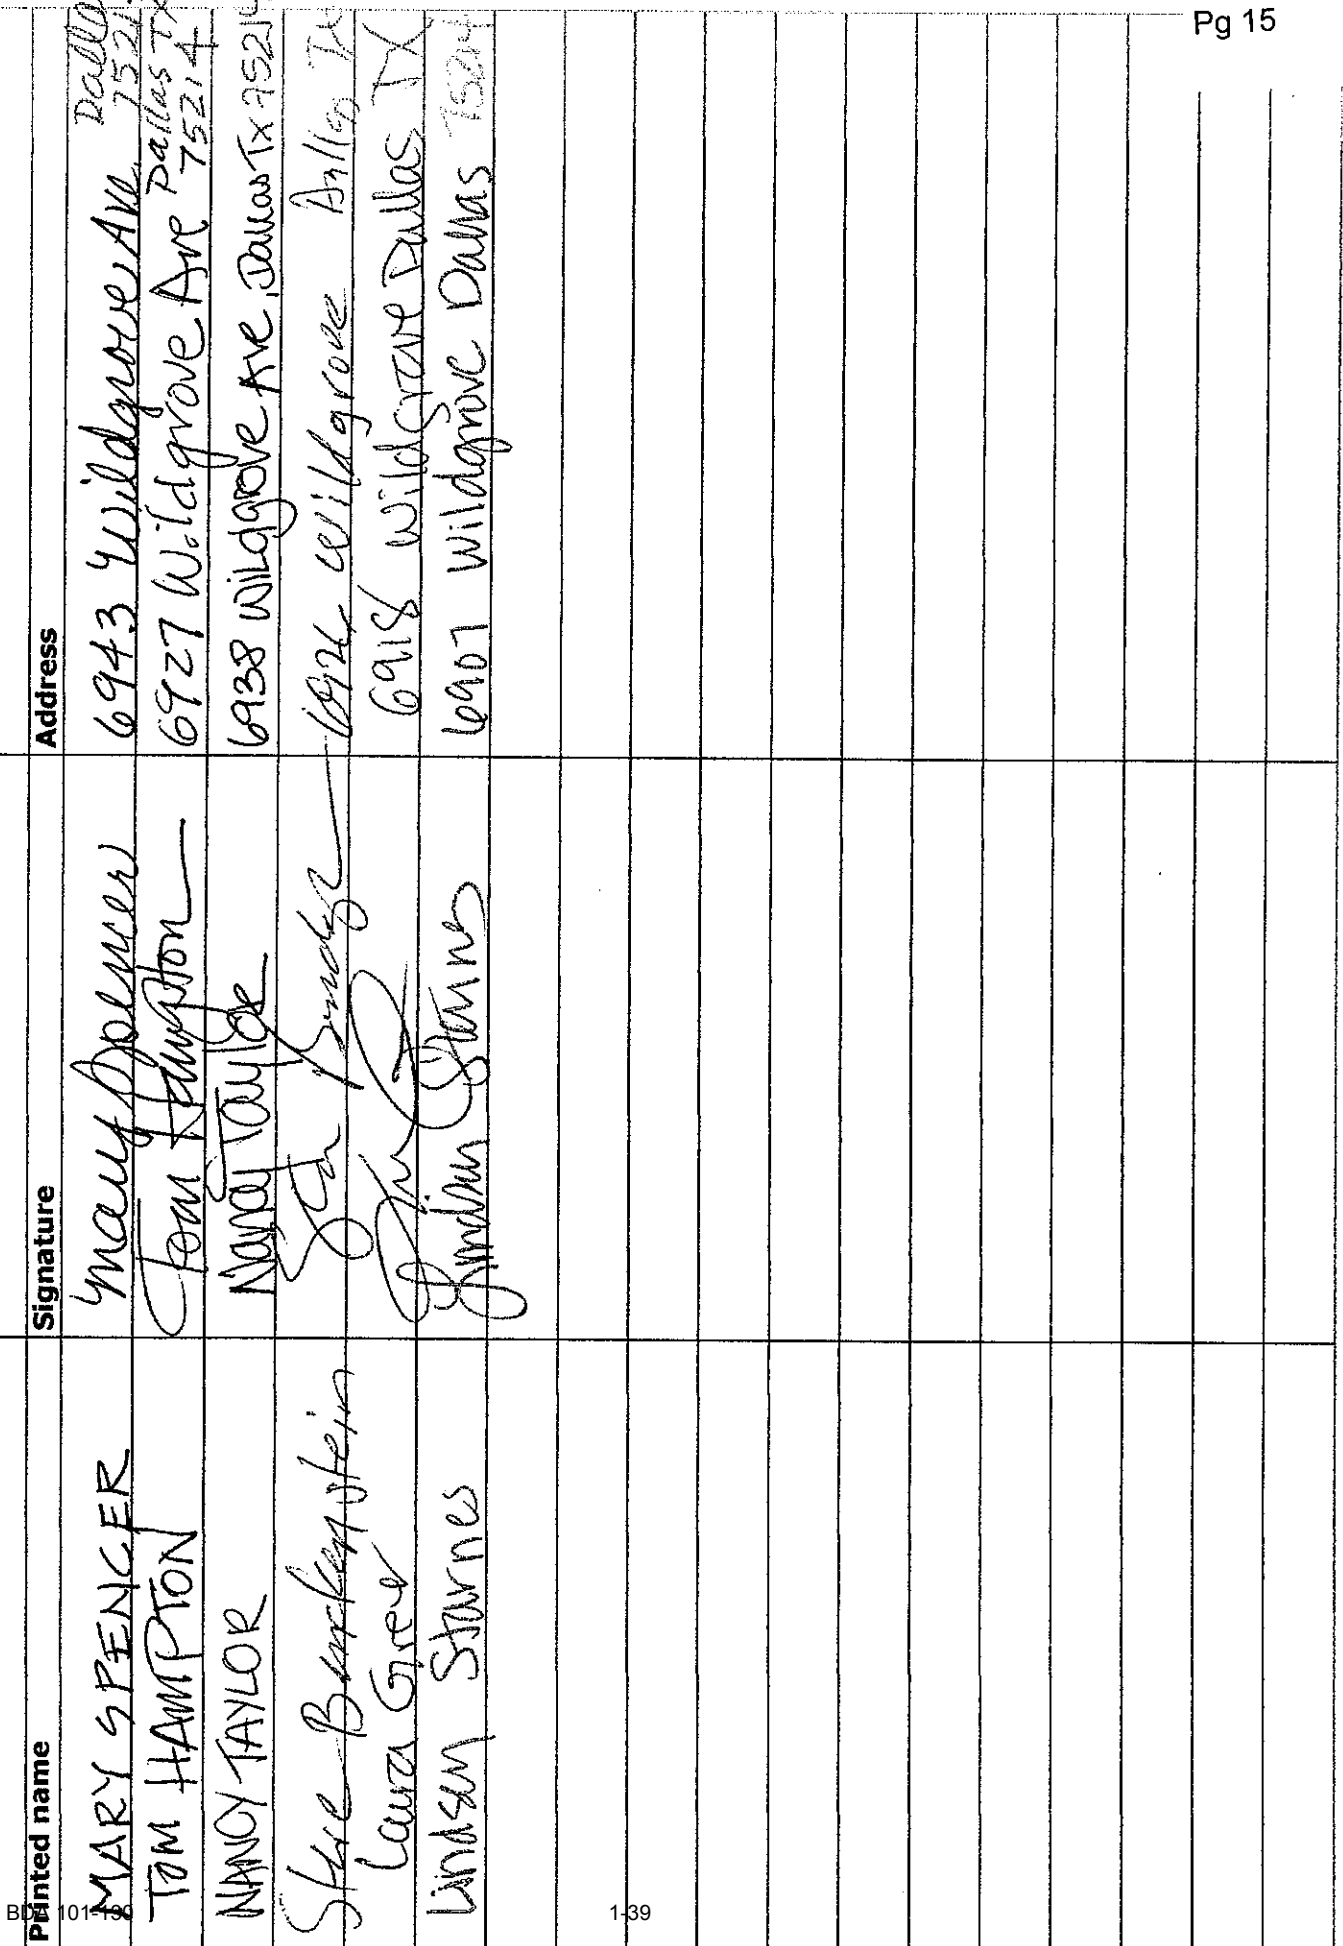 Pg 15
Printed name Signature Address
MARY SPENCER Mary Spencer 6943 Wildgrove Ave Dallas
TOM HAMPTON Tom Hampton 6927 Wildgrove Ave Dallas TX 75214
NANCY TAYLOR Nancy Taylor 6938 Wildgrove Ave, Dallas TX 75214
Steve 6926 Wildgrove Dallas
Laura 6918 Wildgrove Dallas TX
Lindsey Starnes Lindsey Starnes 6907 Wildgrove Dallas 75214
BDA 101-139
1-39